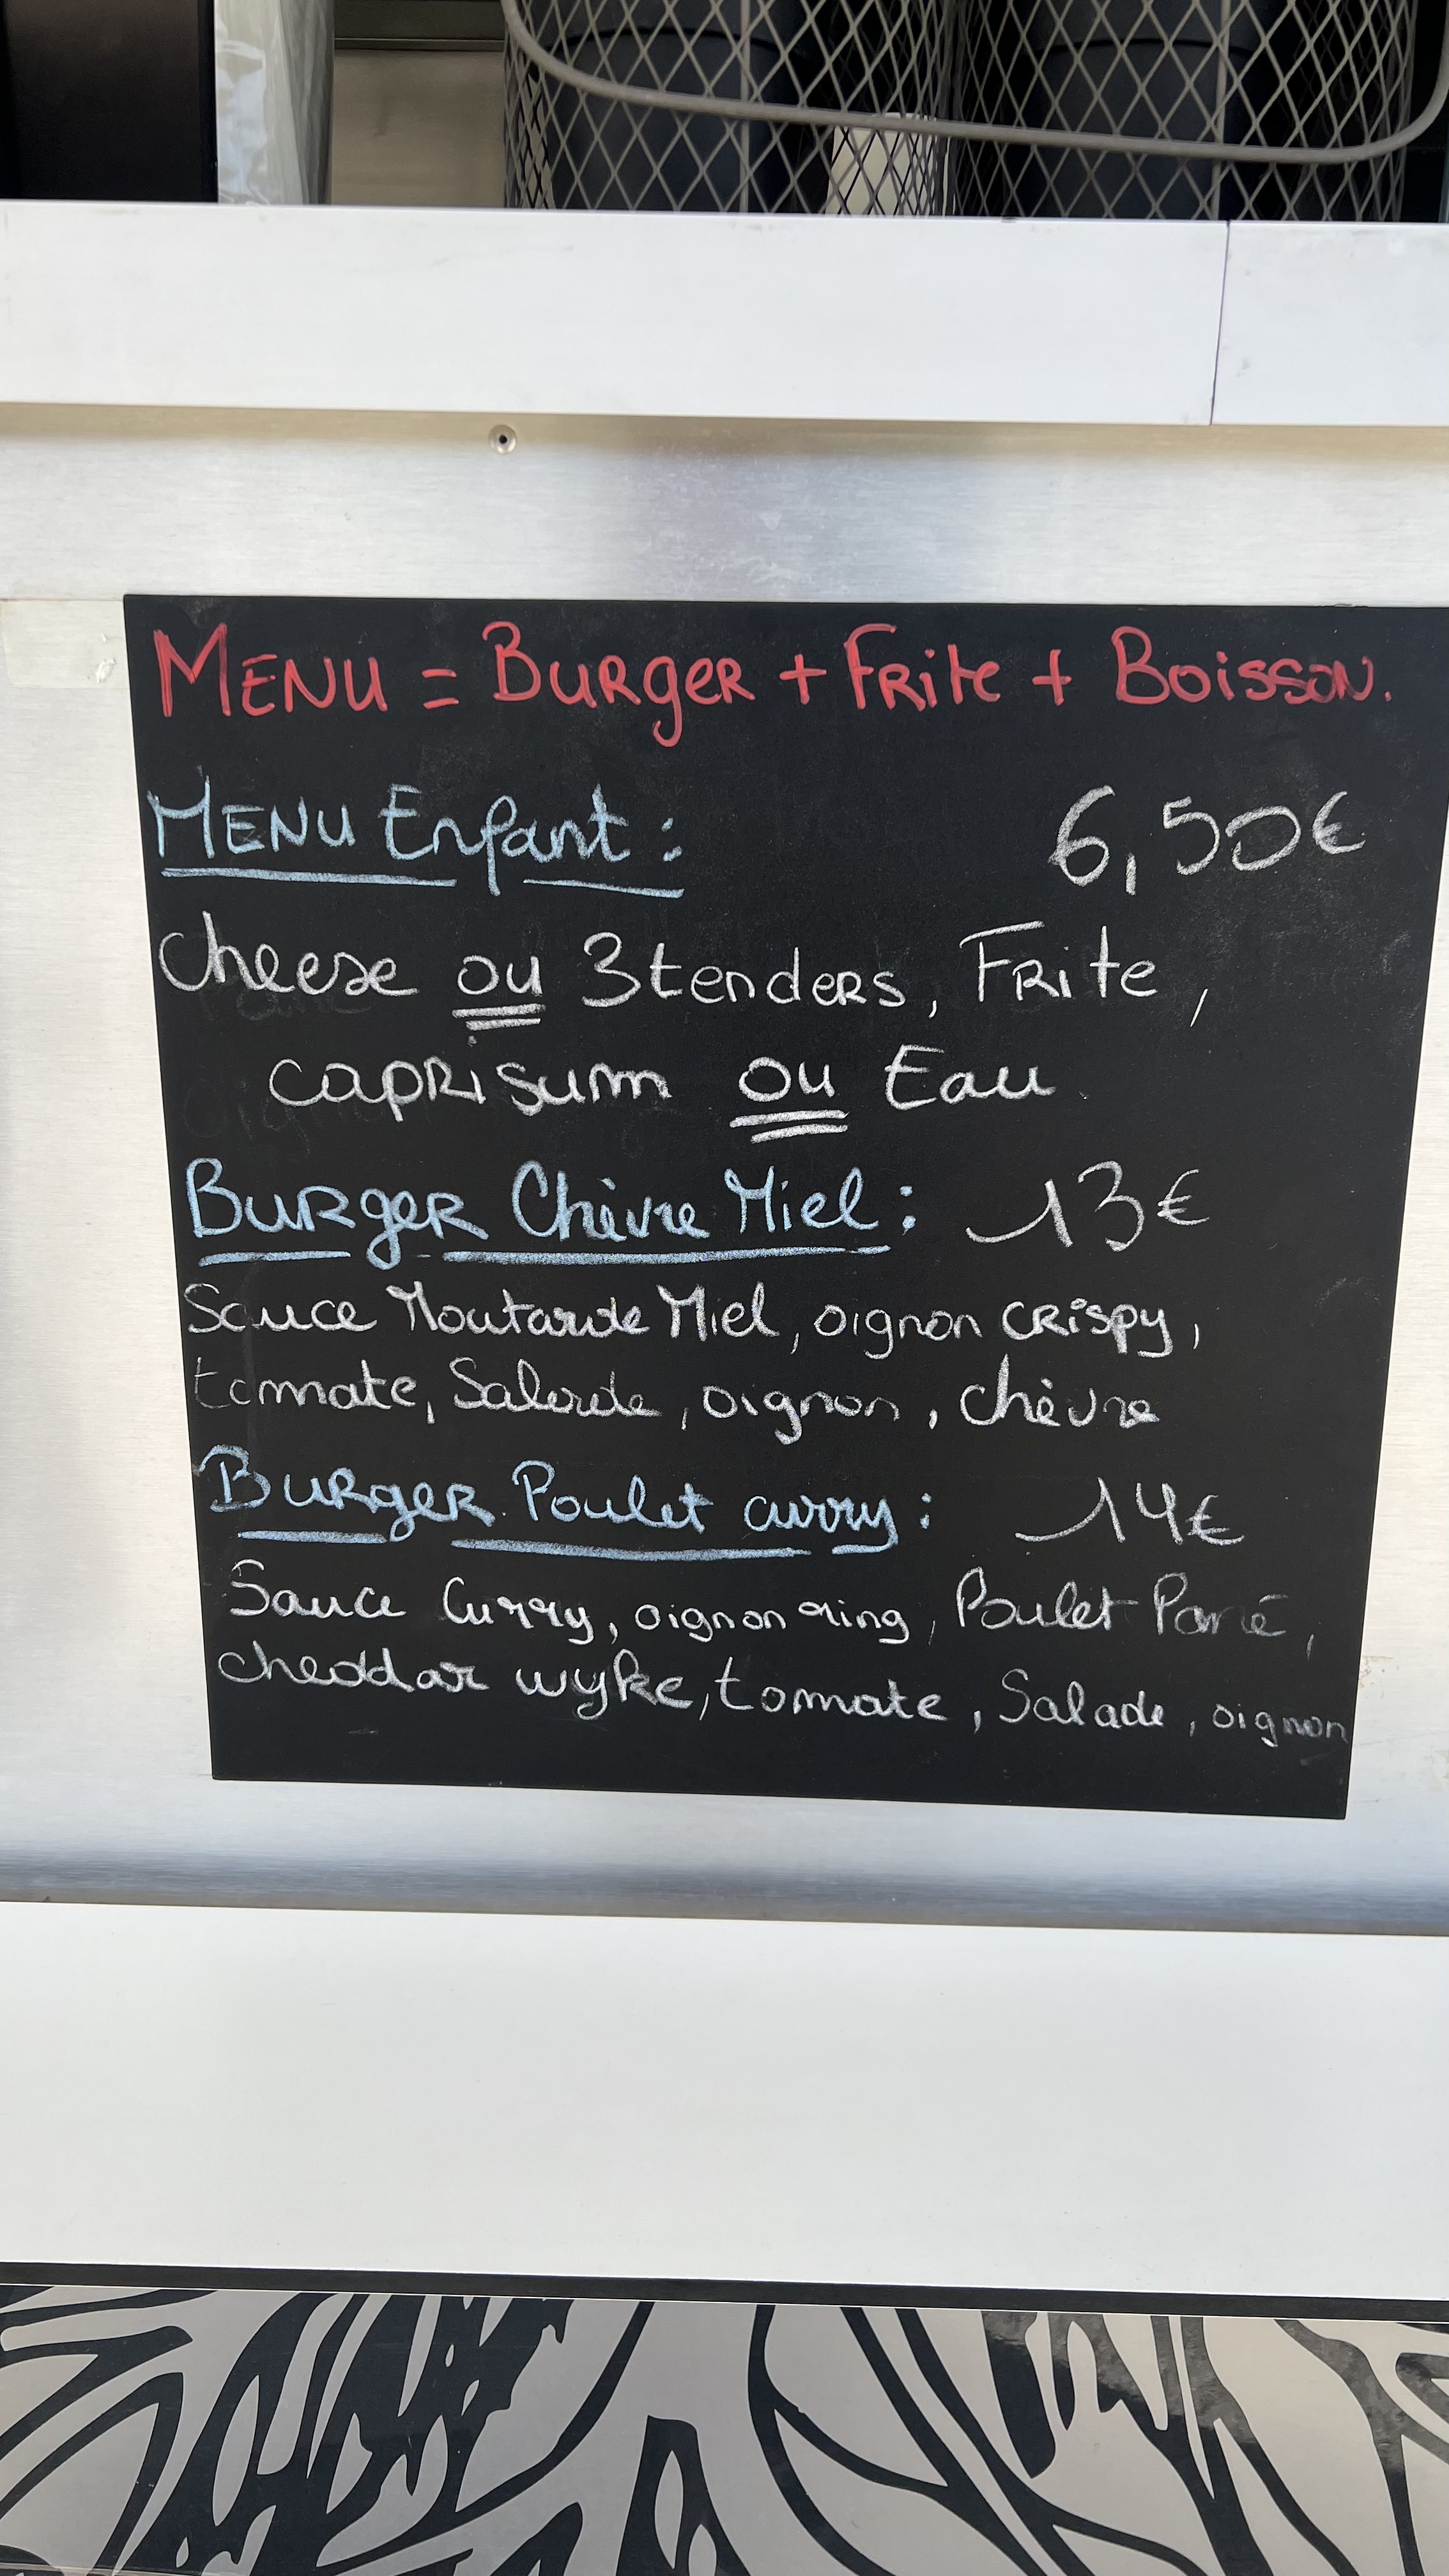 MENU = BURGER + FRite + BOISSON.
MENU Enfant : 6,50€
Cheese ou 3 tenders, FRite,
capRisum ou Eau
BURgER Chèvre Miel : 13€
Sauce Moutarde Miel, oignon CRispy,
tomate, Salade, oignon, chèvre
BURgER Poulet curry : 14€
Sauce Curry, oignon ring, Poulet Pané,
cheddar wyke, tomate, Salade, oignon